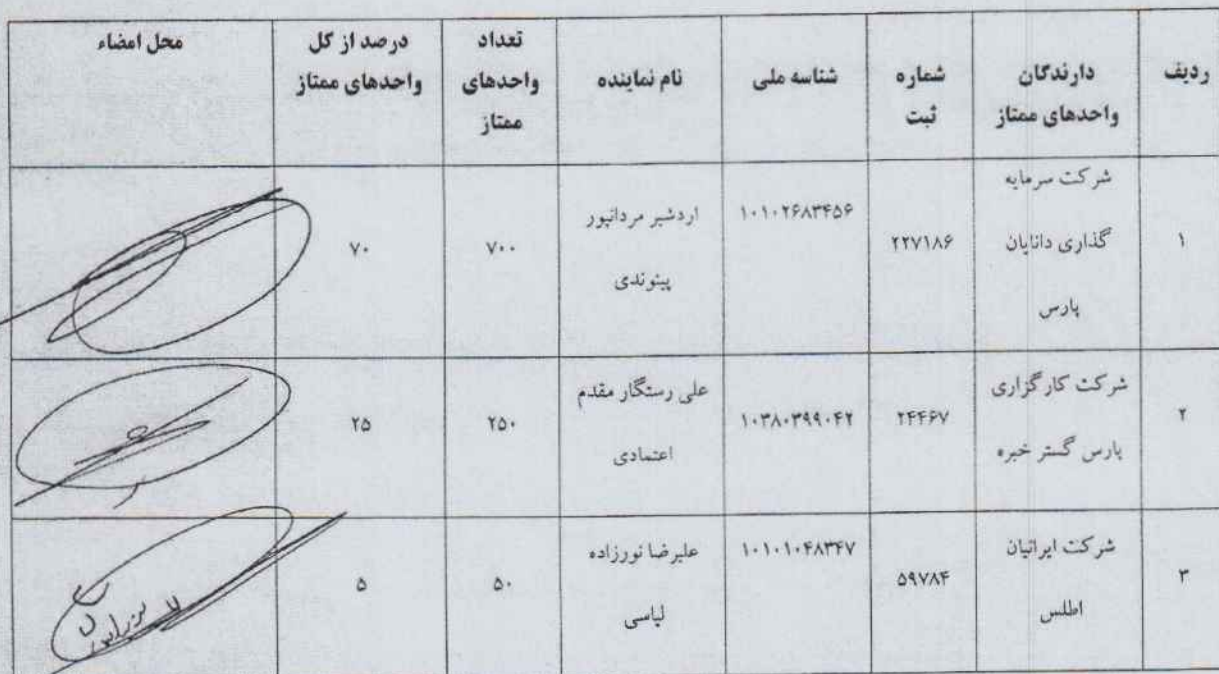 ردیف
دارندگان
واحدهای ممتاز
شماره
ثبت
شناسه ملی
نام نماینده
تعداد
واحدهای
ممتاز
درصد از کل
واحدهای ممتاز
محل امضاء
۱
شرکت سرمایه
گذاری دانایان
پارس
۲۲۷۱۸۶
۱۰۱۰۲۶۸۳۴۵۶
اردشیر مردانپور
پینوندی
۷۰۰
۷۰
۲
شرکت کارگزاری
پارس گستر خبره
۲۴۴۶۷
۱۰۳۸۰۳۹۹۰۴۲
علی رستگار مقدم
اعتمادی
۲۵۰
۲۵
۳
شرکت ایرانیان
اطلس
۵۹۷۸۴
۱۰۱۰۱۰۴۸۳۴۷
علیرضا نورزاده
لباسی
۵۰
۵